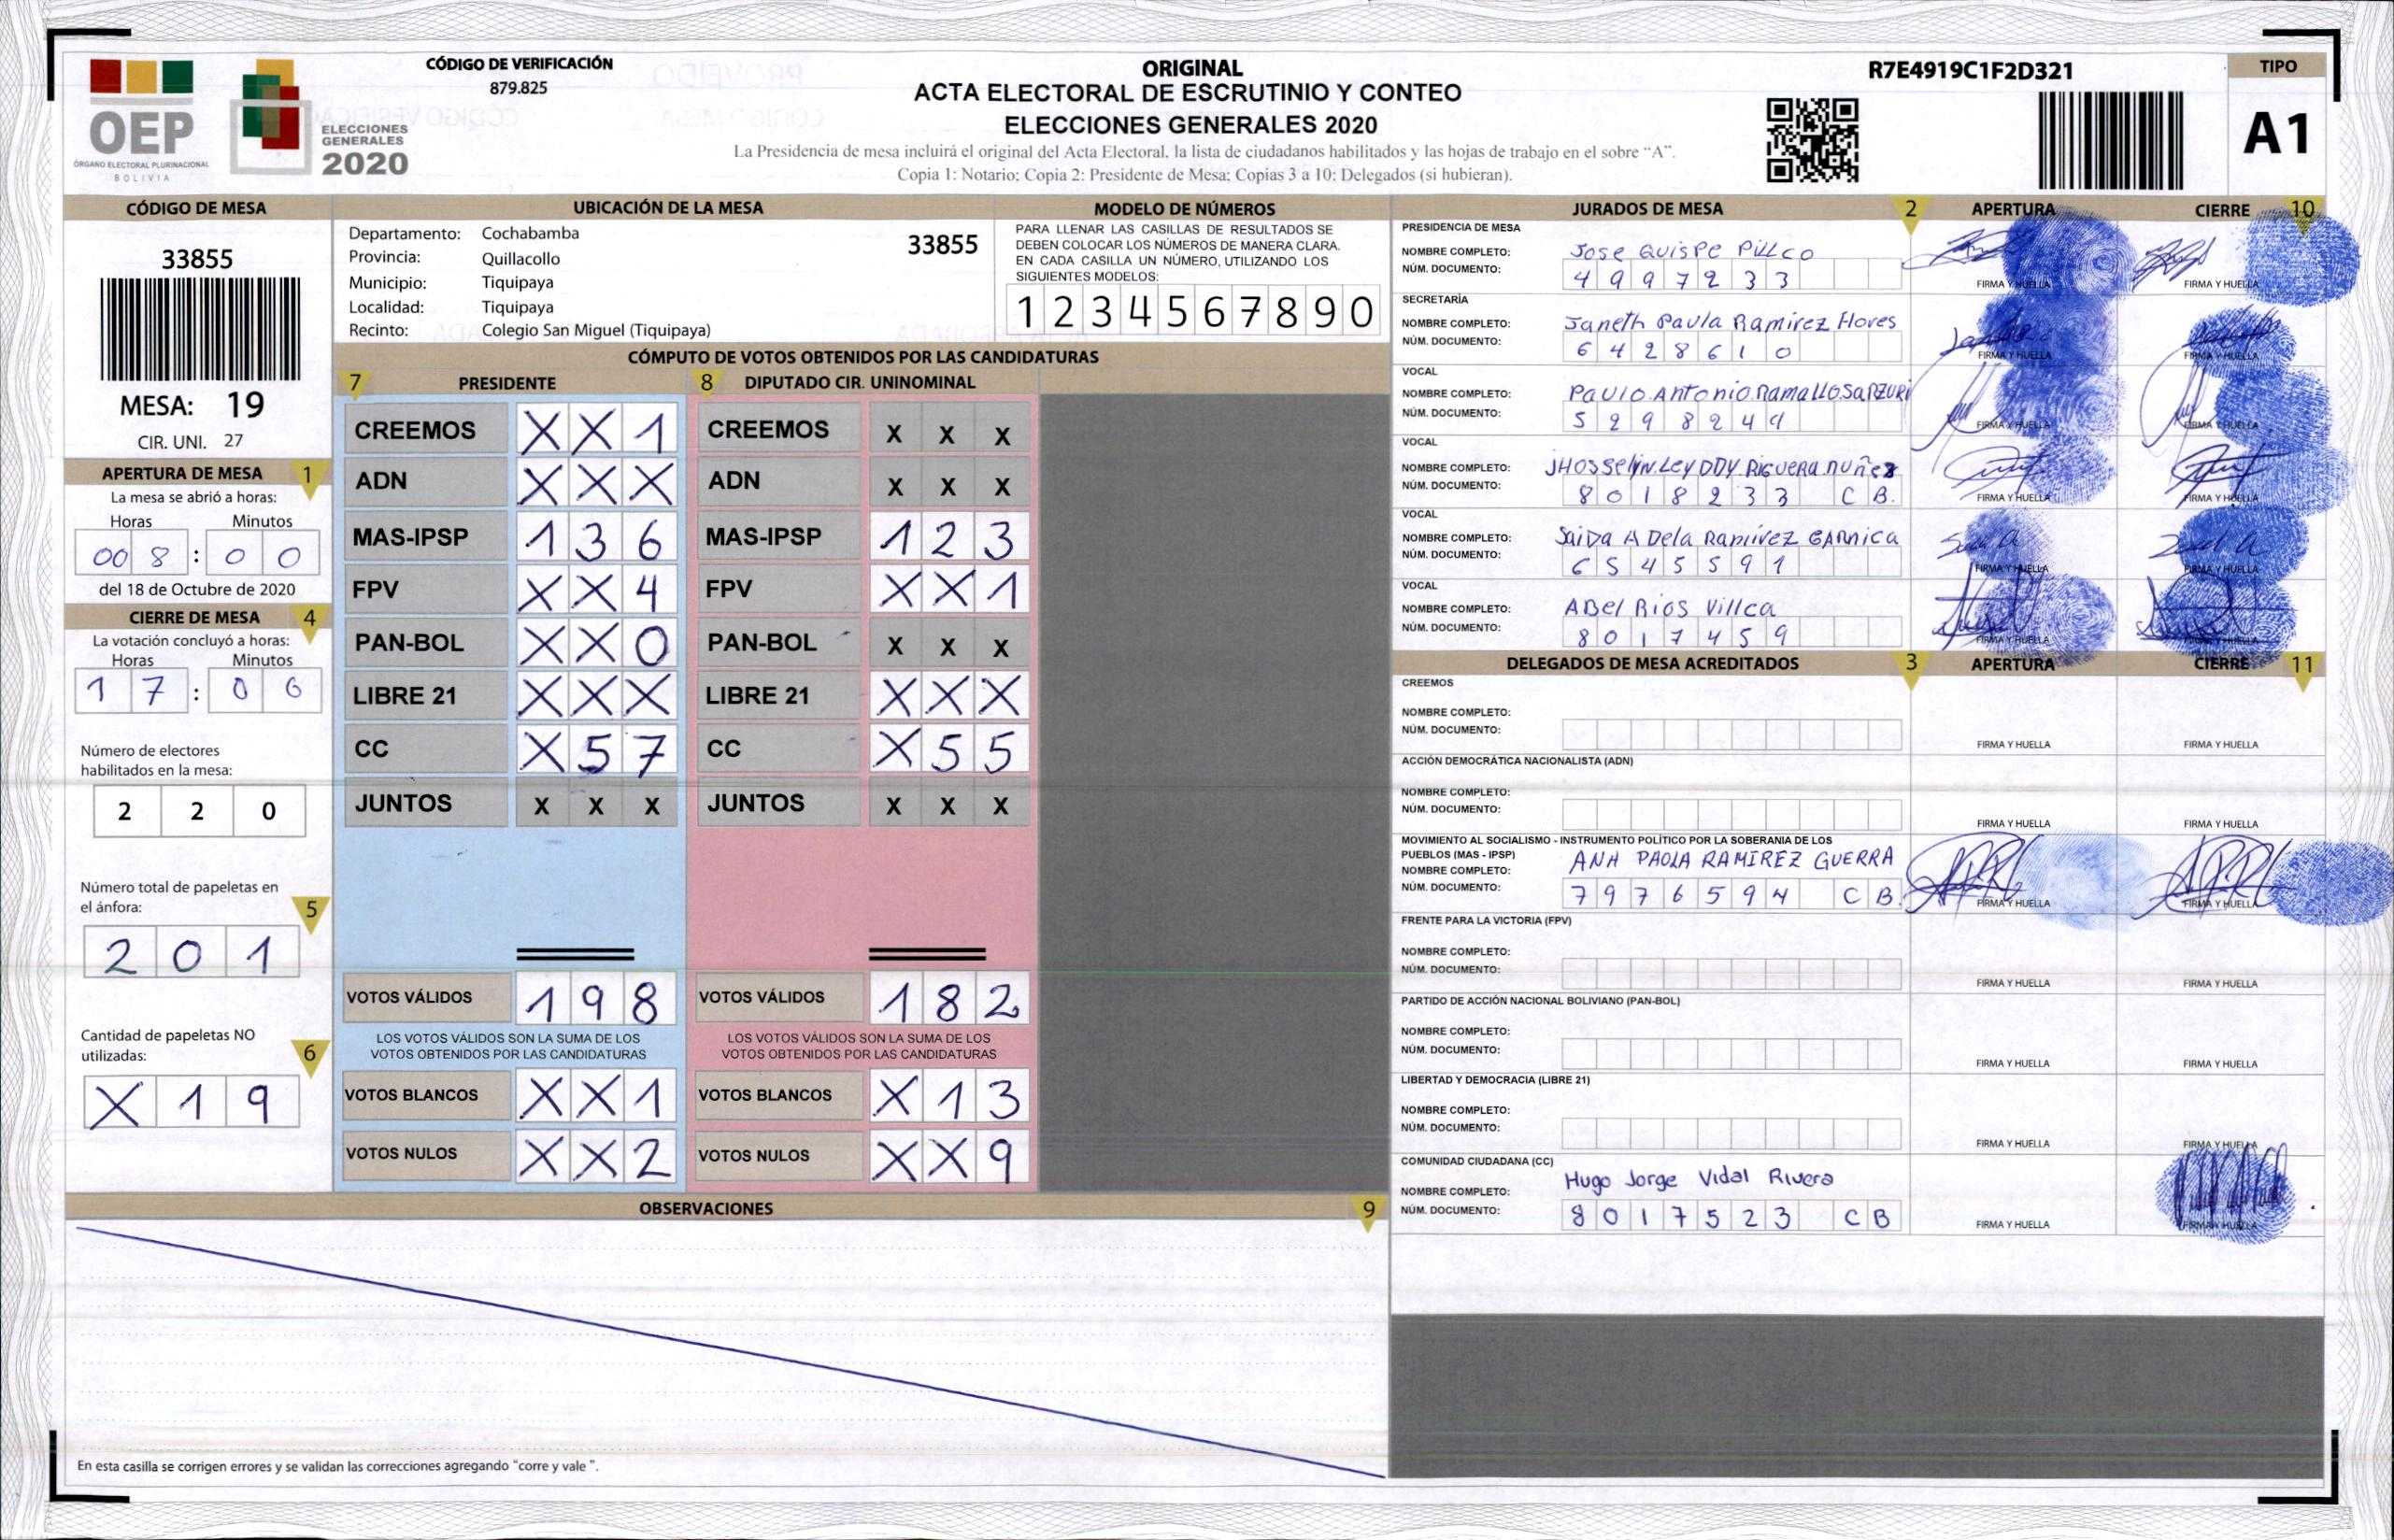 OEP
ÓRGANO ELECTORAL PLURINACIONAL
BOLIVIA
ELECCIONES
GENERALES
2020
CÓDIGO DE VERIFICACIÓN
879.825
ORIGINAL
ACTA ELECTORAL DE ESCRUTINIO Y CONTEO
ELECCIONES GENERALES 2020
La Presidencia de mesa incluirá el original del Acta Electoral, la lista de ciudadanos habilitados y las hojas de trabajo en el sobre “A”.
Copia 1: Notario; Copia 2: Presidente de Mesa; Copias 3 a 10: Delegados (si hubieran).
R7E4919C1F2D321
TIPO
A1
CÓDIGO DE MESA
33855
MESA: 19
CIR. UNI. 27
APERTURA DE MESA 1
La mesa se abrió a horas:
Horas Minutos
00 8 : 0 0
del 18 de Octubre de 2020
CIERRE DE MESA 4
La votación concluyó a horas:
Horas Minutos
1 7 : 0 6
Número de electores
habilitados en la mesa:
2 2 0
Número total de papeletas en
el ánfora: 5
2 0 1
Cantidad de papeletas NO
utilizadas: 6
X 1 9
UBICACIÓN DE LA MESA
Departamento: Cochabamba
33855
Provincia: Quillacollo
Municipio: Tiquipaya
Localidad: Tiquipaya
Recinto: Colegio San Miguel (Tiquipaya)
MODELO DE NÚMEROS
PARA LLENAR LAS CASILLAS DE RESULTADOS SE
DEBEN COLOCAR LOS NÚMEROS DE MANERA CLARA.
EN CADA CASILLA UN NÚMERO, UTILIZANDO LOS
SIGUIENTES MODELOS:
1 2 3 4 5 6 7 8 9 0
CÓMPUTO DE VOTOS OBTENIDOS POR LAS CANDIDATURAS
7 PRESIDENTE 8 DIPUTADO CIR. UNINOMINAL
CREEMOS X X 1 CREEMOS X X X
ADN X X X ADN X X X
MAS-IPSP 1 3 6 MAS-IPSP 1 2 3
FPV X X 4 FPV X X 1
PAN-BOL X X 0 PAN-BOL X X X
LIBRE 21 X X X LIBRE 21 X X X
CC X 5 7 CC X 5 5
JUNTOS X X X JUNTOS X X X
VOTOS VÁLIDOS 1 9 8 VOTOS VÁLIDOS 1 8 2
LOS VOTOS VÁLIDOS SON LA SUMA DE LOS LOS VOTOS VÁLIDOS SON LA SUMA DE LOS
VOTOS OBTENIDOS POR LAS CANDIDATURAS VOTOS OBTENIDOS POR LAS CANDIDATURAS
VOTOS BLANCOS X X 1 VOTOS BLANCOS X 1 3
VOTOS NULOS X X 2 VOTOS NULOS X X 9
OBSERVACIONES 9
En esta casilla se corrigen errores y se validan las correcciones agregando “corre y vale ”.
JURADOS DE MESA 2 APERTURA CIERRE 10
PRESIDENCIA DE MESA
NOMBRE COMPLETO: Jose Quispe Pillco
NÚM. DOCUMENTO: 4 9 9 7 2 3 3
FIRMA Y HUELLA FIRMA Y HUELLA
SECRETARÍA
NOMBRE COMPLETO: Janeth Paula Ramirez Flores
NÚM. DOCUMENTO: 6 4 2 8 6 1 0
FIRMA Y HUELLA FIRMA Y HUELLA
VOCAL
NOMBRE COMPLETO: Paulo Antonio Ramallo Sarzuri
NÚM. DOCUMENTO: 5 2 9 8 2 4 4
FIRMA Y HUELLA FIRMA Y HUELLA
VOCAL
NOMBRE COMPLETO: JHosselyn Leyddy Riguera Nuñez
NÚM. DOCUMENTO: 8 0 1 8 2 3 3 C B.
FIRMA Y HUELLA FIRMA Y HUELLA
VOCAL
NOMBRE COMPLETO: Saida Adela Ramirez Garnica
NÚM. DOCUMENTO: 6 5 4 5 5 9 1
FIRMA Y HUELLA FIRMA Y HUELLA
VOCAL
NOMBRE COMPLETO: Abel Rios Villca
NÚM. DOCUMENTO: 8 0 1 7 4 5 9
FIRMA Y HUELLA FIRMA Y HUELLA
DELEGADOS DE MESA ACREDITADOS 3 APERTURA CIERRE 11
CREEMOS
NOMBRE COMPLETO:
NÚM. DOCUMENTO:
FIRMA Y HUELLA FIRMA Y HUELLA
ACCIÓN DEMOCRÁTICA NACIONALISTA (ADN)
NOMBRE COMPLETO:
NÚM. DOCUMENTO:
FIRMA Y HUELLA FIRMA Y HUELLA
MOVIMIENTO AL SOCIALISMO - INSTRUMENTO POLÍTICO POR LA SOBERANIA DE LOS
PUEBLOS (MAS - IPSP)
NOMBRE COMPLETO: ANA PAOLA RAMIREZ GUERRA
NÚM. DOCUMENTO: 7 9 7 6 5 9 4 C B.
FIRMA Y HUELLA FIRMA Y HUELLA
FRENTE PARA LA VICTORIA (FPV)
NOMBRE COMPLETO:
NÚM. DOCUMENTO:
FIRMA Y HUELLA FIRMA Y HUELLA
PARTIDO DE ACCIÓN NACIONAL BOLIVIANO (PAN-BOL)
NOMBRE COMPLETO:
NÚM. DOCUMENTO:
FIRMA Y HUELLA FIRMA Y HUELLA
LIBERTAD Y DEMOCRACIA (LIBRE 21)
NOMBRE COMPLETO:
NÚM. DOCUMENTO:
FIRMA Y HUELLA FIRMA Y HUELLA
COMUNIDAD CIUDADANA (CC)
NOMBRE COMPLETO: Hugo Jorge Vidal Rivera
NÚM. DOCUMENTO: 8 0 1 7 5 2 3 C B
FIRMA Y HUELLA FIRMA Y HUELLA